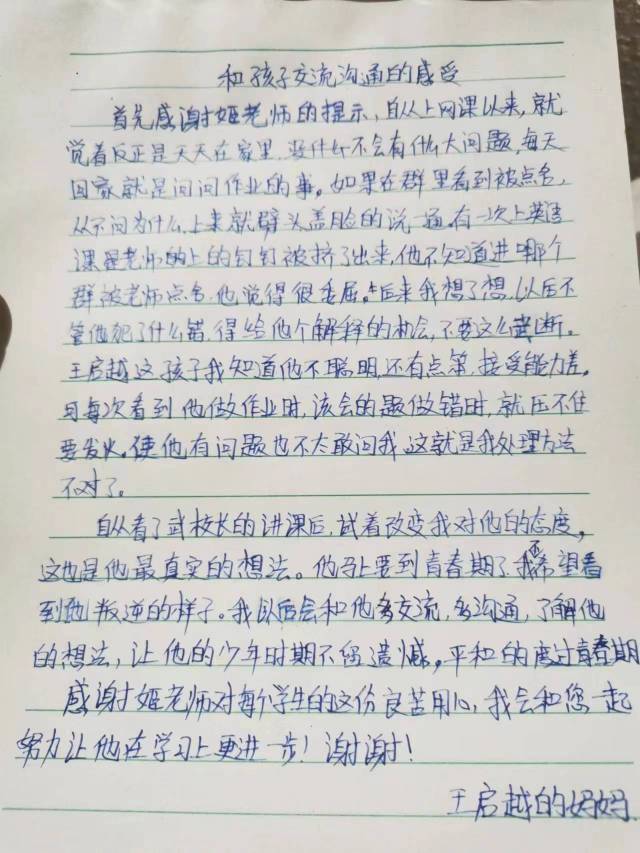 和孩子交流沟通的感受
首先感谢姬老师的提示，自从上网课以来，就
觉着反正是天天在家里，没什么不会有什么大问题，每天
回家就是问问作业的事。如果在群里看到被点名，
从不问为什么，上来就劈头盖脸的说一通，有一次上英语
课老师的上的钉钉被挤了出来，他不知道进哪个
群被老师点名，他觉得很委屈。后来我想了想，以后不
管他犯了什么错，得给他个解释的机会，不要这么武断。
王启越这孩子我知道他不聪明，还有点笨，接受能力差。
可每次看到他做作业时，该会的题做错时，就压不住
要发火。使他有问题也不太敢问我。这就是我处理方法
不对了。
自从看了武校长的讲课后，试着改变我对他的态度，
这也是他最真实的想法。他马上要到青春期了，我不希望看
到他叛逆的样子。我以后会和他多交流，多沟通，了解他
的想法，让他的少年时期不留遗憾，平和的度过青春期
感谢姬老师对每个学生的这份良苦用心，我会和您一起
努力让他在学习上更进一步！谢谢！
王启越的妈妈